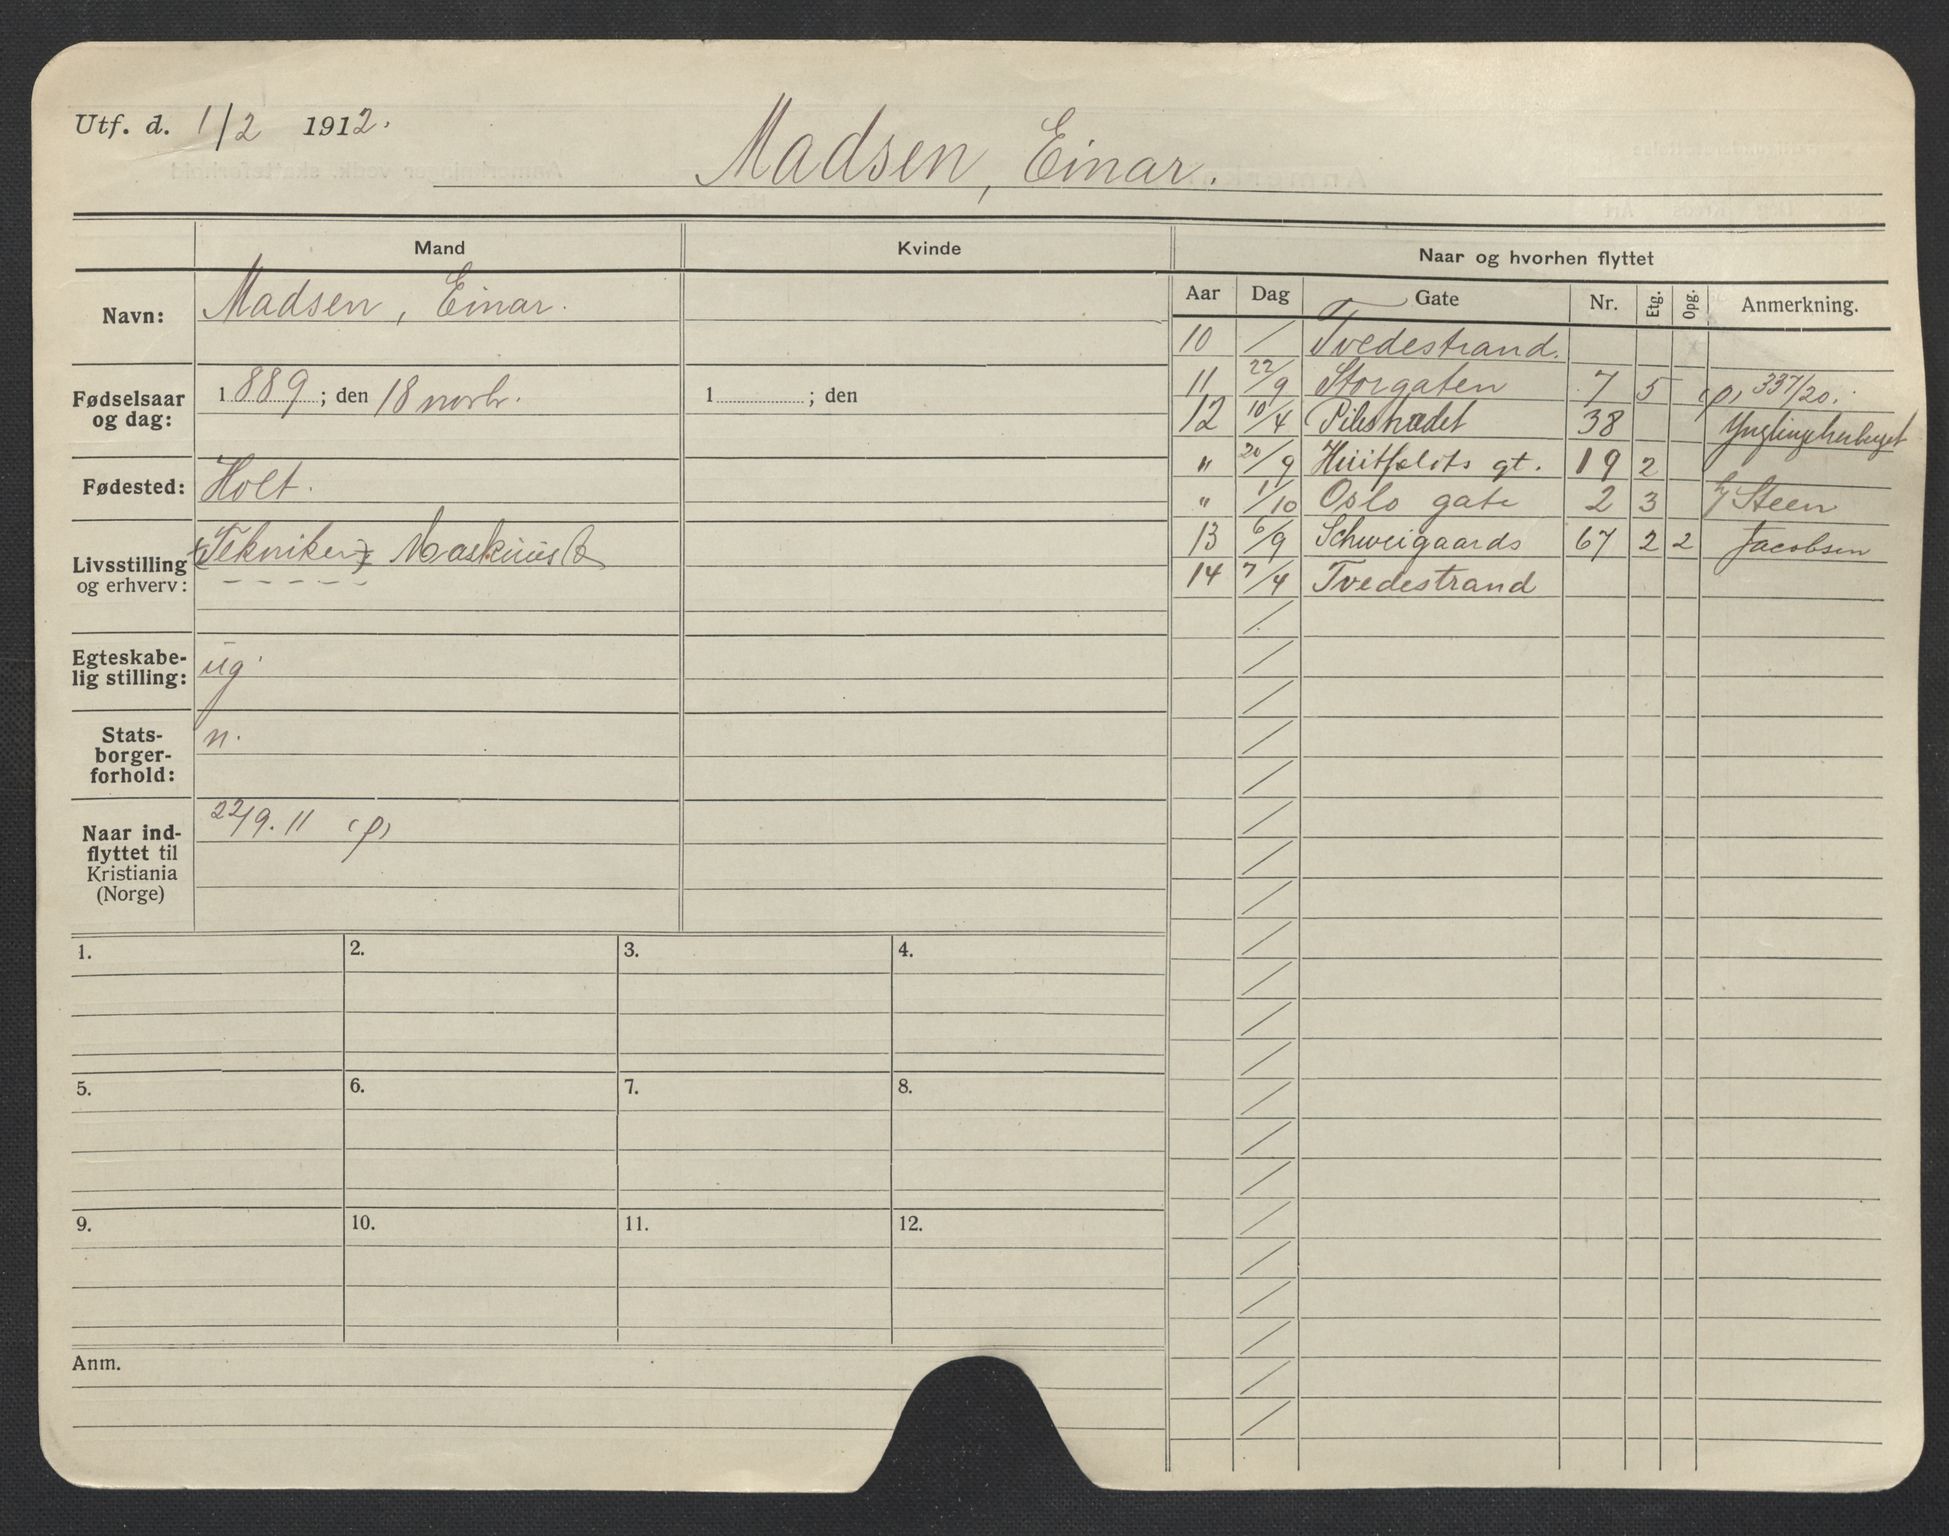 Utf. d. 1/2 1912.
Madsen, Einar.
Mand Kvinde Naar og hvorhen flyttet
Aar Dag Gate Nr. Etg. Opg. Anmerkning.
Navn: Madsen, Einar.
Fødselsaar og dag: 1889; den 18 novbr. 1 ; den
Fødested: Holt.
Livsstilling og erhverv: (Tekniker) Maskinist
Egteskabe-
lig stilling: ug.
Stats-
borger-
forhold: n.
Naar ind-
flyttet til
Kristiania
(Norge) 22/9. 11 (p)
10 / Tvedestrand.
11 22/9 Storgaten 7 5 (p) 337/20.
12 10/4 Pilestrædet 38 Ynglingeherberget
" 20/9 Huitfeldts gt. 19 2
" 1/10 Oslo gate 2 3 h/ Steen
13 6/9 Schweigaards 67 2 2 Jacobsen
14 7/4 Tvedestrand
1. 2. 3. 4.
5. 6. 7. 8.
9. 10. 11. 12.
Anm.